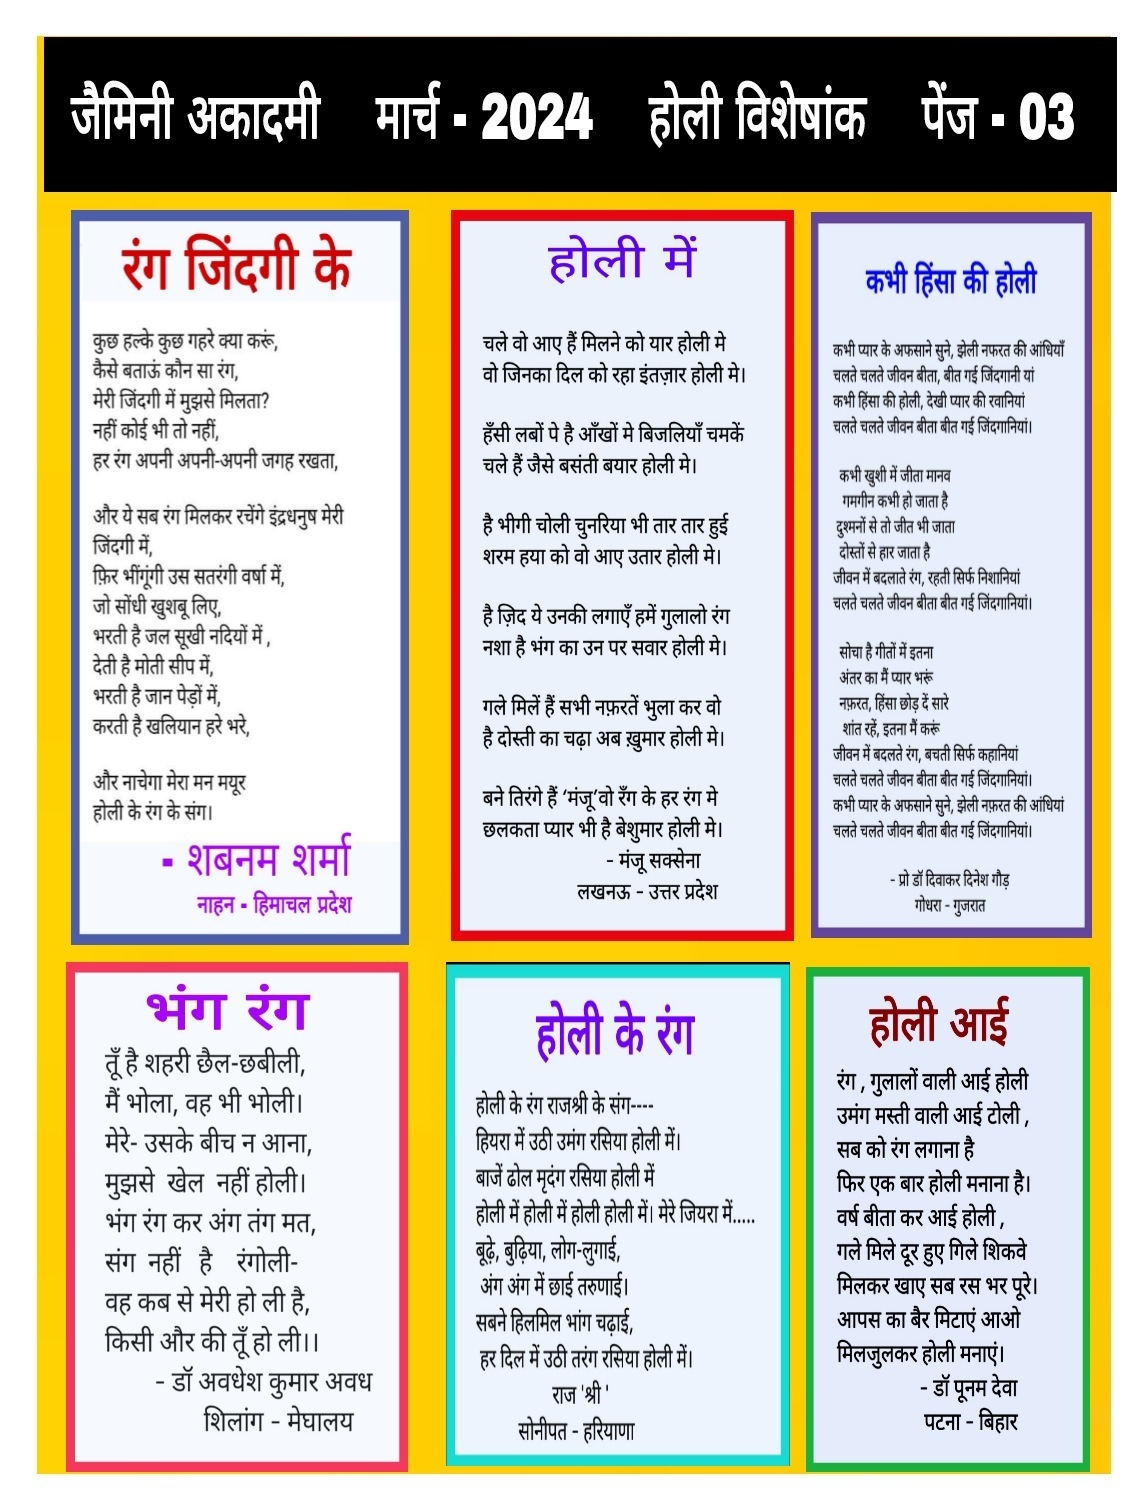 जैमिनी अकादमी मार्च - 2024 होली विशेषांक पेंज - 03
रंग जिंदगी के
कुछ हल्के कुछ गहरे क्या करूं,
कैसे बताऊं कौन सा रंग,
मेरी जिंदगी में मुझसे मिलता?
नहीं कोई भी तो नहीं,
हर रंग अपनी अपनी-अपनी जगह रखता,
और ये सब रंग मिलकर रचेंगे इंद्रधनुष मेरी
जिंदगी में,
फ़िर भींगूंगी उस सतरंगी वर्षा में,
जो सोंधी खुशबू लिए,
भरती है जल सूखी नदियों में ,
देती है मोती सीप में,
भरती है जान पेड़ों में,
करती है खलियान हरे भरे,
और नाचेगा मेरा मन मयूर
होली के रंग के संग।
- शबनम शर्मा
नाहन - हिमाचल प्रदेश
होली में
चले वो आए हैं मिलने को यार होली मे
वो जिनका दिल को रहा इंतज़ार होली मे।
हँसी लबों पे है आँखों मे बिजलियाँ चमकें
चले हैं जैसे बसंती बयार होली मे।
है भीगी चोली चुनरिया भी तार तार हुई
शरम हया को वो आए उतार होली मे।
है ज़िद ये उनकी लगाएँ हमें गुलालो रंग
नशा है भंग का उन पर सवार होली मे।
गले मिलें हैं सभी नफ़रतें भुला कर वो
है दोस्ती का चढ़ा अब ख़ुमार होली मे।
बने तिरंगे हैं ‘मंजू’वो रँग के हर रंग मे
छलकता प्यार भी है बेशुमार होली मे।
- मंजू सक्सेना
लखनऊ - उत्तर प्रदेश
कभी हिंसा की होली
कभी प्यार के अफसाने सुने, झेली नफरत की आंधियाँ
चलते चलते जीवन बीता, बीत गई जिंदगानी यां
कभी हिंसा की होली, देखी प्यार की रवानियां
चलते चलते जीवन बीता बीत गई जिंदगानियां।
कभी खुशी में जीता मानव
गमगीन कभी हो जाता है
दुश्मनों से तो जीत भी जाता
दोस्तों से हार जाता है
जीवन में बदलाते रंग, रहती सिर्फ निशानियां
चलते चलते जीवन बीता बीत गई जिंदगानियां।
सोचा है गीतों में इतना
अंतर का मैं प्यार भरूं
नफ़रत, हिंसा छोड़ दें सारे
शांत रहें, इतना मैं करूं
जीवन में बदलते रंग, बचती सिर्फ कहानियां
चलते चलते जीवन बीता बीत गई जिंदगानियां।
कभी प्यार के अफसाने सुने, झेली नफ़रत की आंधियां
चलते चलते जीवन बीता बीत गई जिंदगानियां।
- प्रो डॉ दिवाकर दिनेश गौड़
गोधरा - गुजरात
भंग रंग
तूँ है शहरी छैल-छबीली,
मैं भोला, वह भी भोली।
मेरे- उसके बीच न आना,
मुझसे खेल नहीं होली।
भंग रंग कर अंग तंग मत,
संग नहीं है रंगोली-
वह कब से मेरी हो ली है,
किसी और की तूँ हो ली।।
- डॉ अवधेश कुमार अवध
शिलांग - मेघालय
होली के रंग
होली के रंग राजश्री के संग----
हियरा में उठी उमंग रसिया होली में।
बाजें ढोल मृदंग रसिया होली में
होली में होली में होली होली में। मेरे जियरा में.....
बूढ़े, बुढ़िया, लोग-लुगाई,
अंग अंग में छाई तरुणाई।
सबने हिलमिल भांग चढ़ाई,
हर दिल में उठी तरंग रसिया होली में।
राज 'श्री '
सोनीपत - हरियाणा
होली आई
रंग , गुलालों वाली आई होली
उमंग मस्ती वाली आई टोली ,
सब को रंग लगाना है
फिर एक बार होली मनाना है।
वर्ष बीता कर आई होली ,
गले मिले दूर हुए गिले शिकवे
मिलकर खाए सब रस भर पूरे।
आपस का बैर मिटाएं आओ
मिलजुलकर होली मनाएं।
- डॉ पूनम देवा
पटना - बिहार